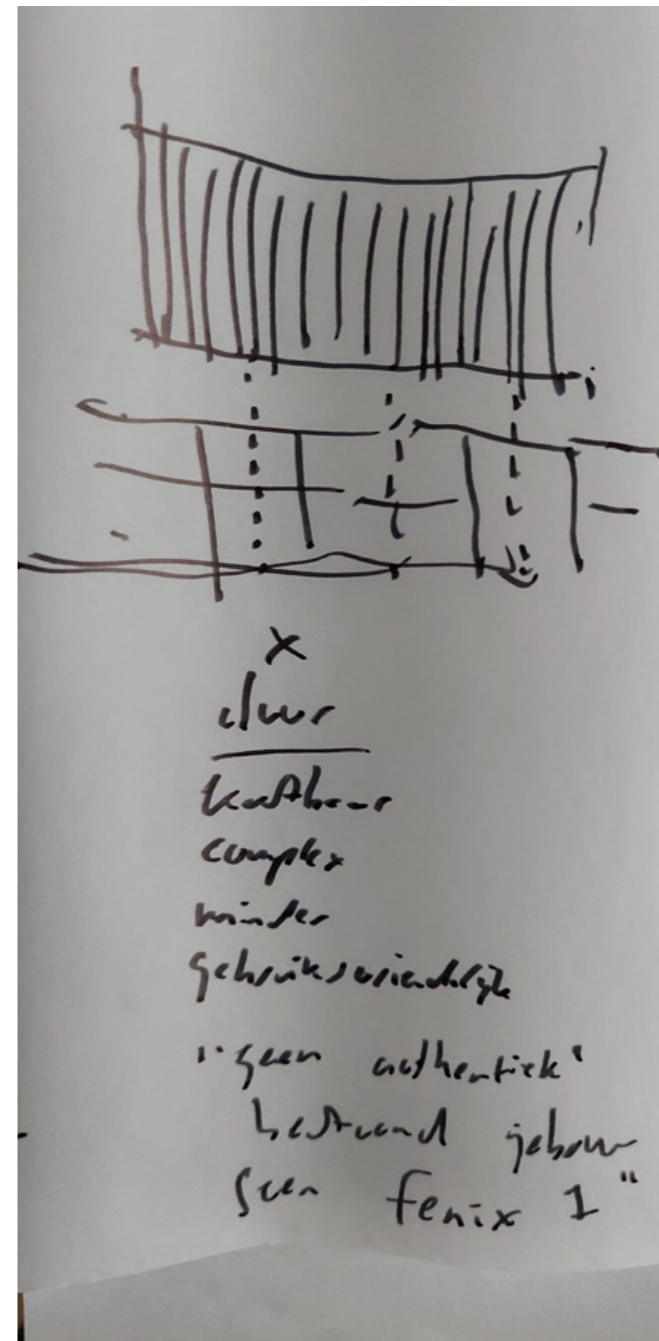 x
duur
kostbaar
complex
minder
gebruiksvriendelijk
"geen authentiek"
bestaand gebouw
geen fenix 1"